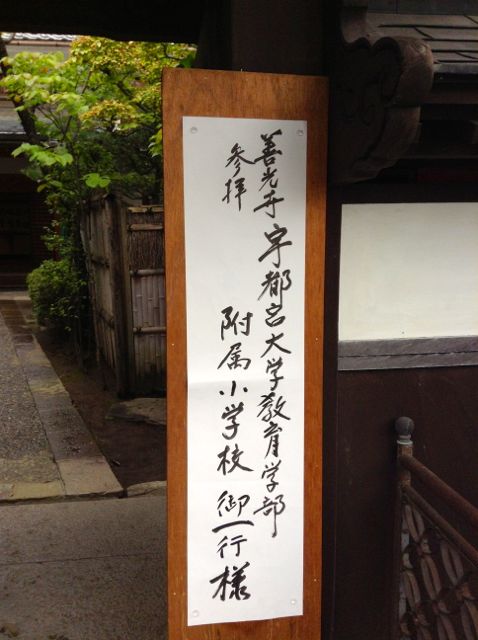 善光寺 宇都宮大学教育学部
参拝 附属小学校 御一行様